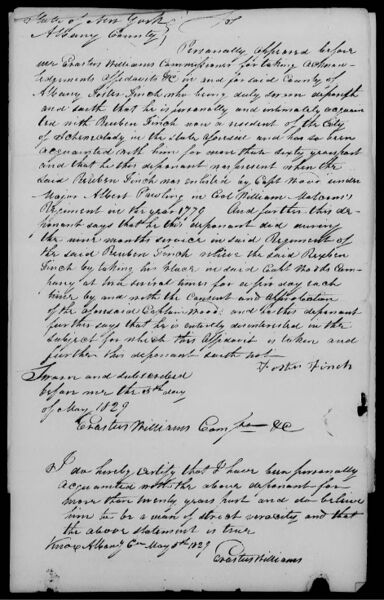 State of New York } SS
Albany County }
Personally appeared before
me Erastus Williams Commissioner for taking acknow
ledgements Affidavits &c in and for said County of
Albany Foster Finch who being duly sworn deposeth
and saith that he is personally and intimately acquain
ted with Reuben Finch now a resident of the City
of Schenectady in the State aforesaid and has so been
acquainted with him for more than sixty years past
and that he this deponant was present when the
said Reuben Finch was enlisted by Capt Wood under
Major Albert Pawling in Col William Malcom's
Regiment in the year 1779 And further this de
ponant says that he this deponant did during
the nine months service in said Regiment of
the said Reuben Finch relieve the said Reuben
Finch by taking his place in said Capt Woods Com
pany at several times for a few day each
time by and with the Consent and Approbation
of the aforesaid Captain Wood and this deponant
further says that he is entirely desinterested in the
subject for which this affidavit is taken and
further this deponant saith not
Foster Finch
Sworn and subscribed
before me the 5th day
of May 1829
Erastus Williams Comr &c
I do hereby certify that I have been personally
acquainted with the above deponant for
more than twenty years past and do believe
him to be a man of strict veracity and that
the above statement is true
Knox Albany Co May 5th 1829
Erastus Williams